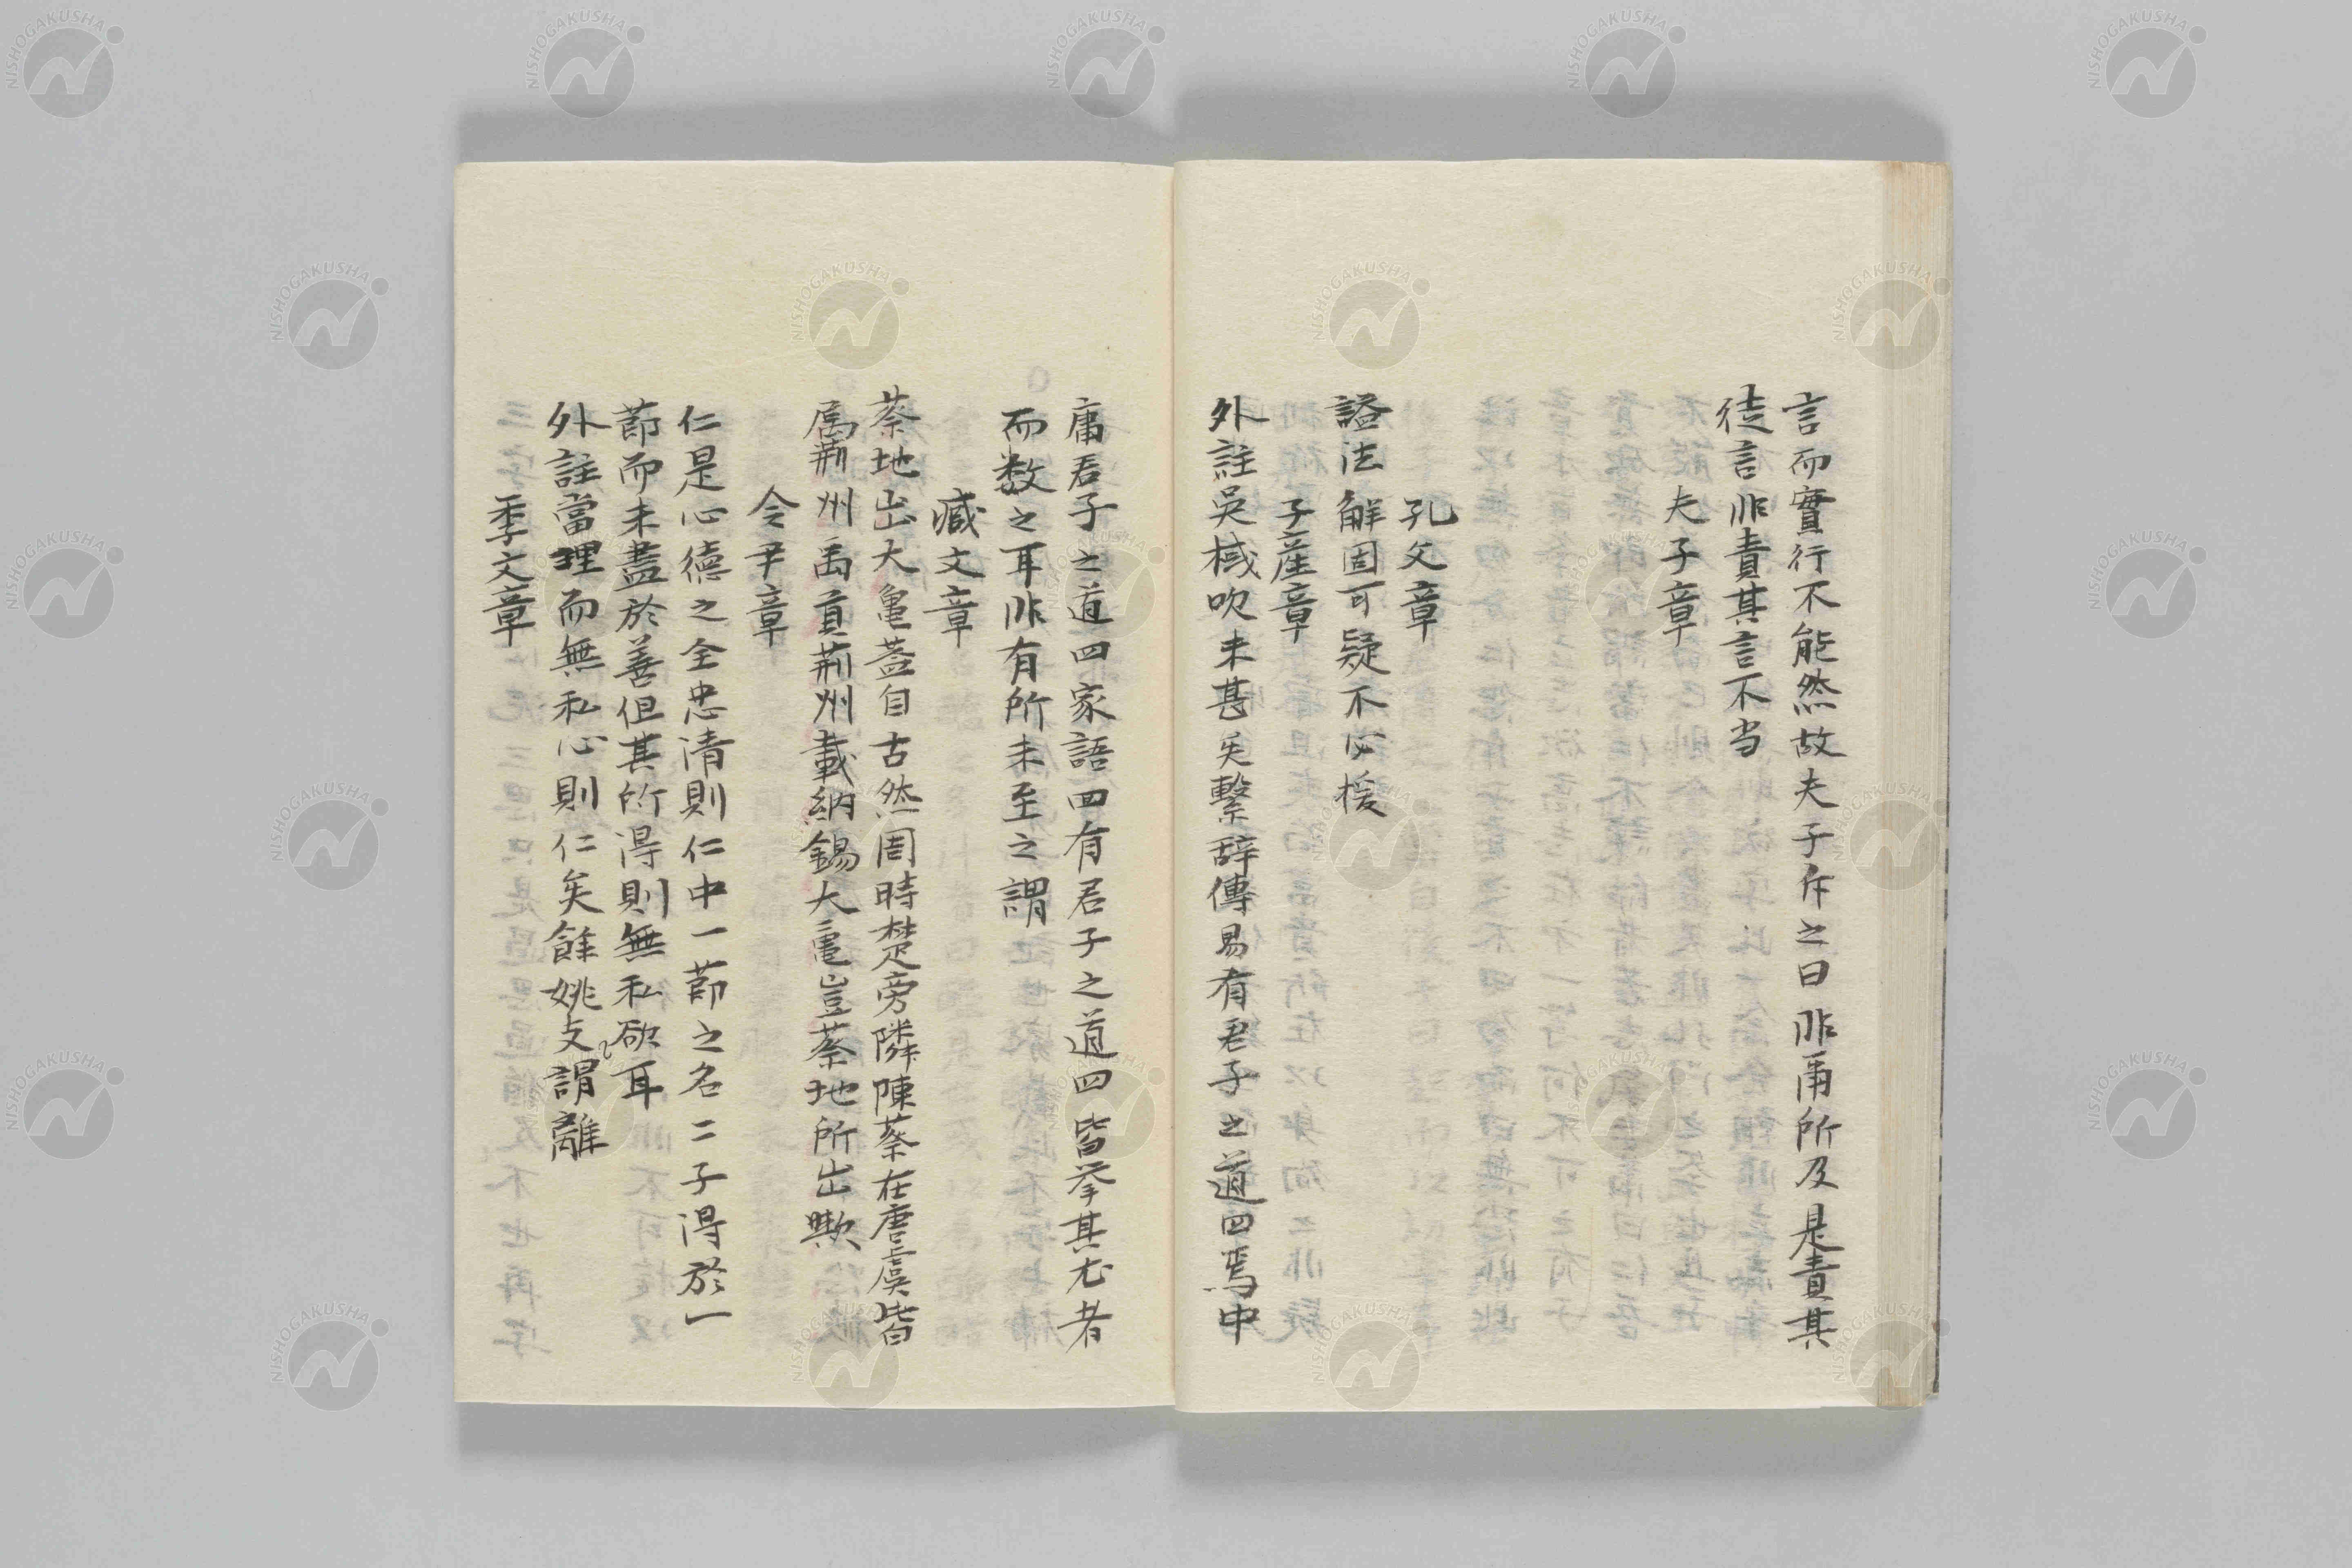 言而實行不能然故夫子斥之曰非爾所及是責其
徒言非責其言不当
夫子章
孔文章
謚法解固可疑不必援
子産章
外註吳棫吹未甚矣繫辞傳易有君子之道四焉中
庸君子之道四家語四有君子之道四皆挙其尤者
而数之耳非有所未至之謂
臧文章
蔡地出大亀蓋自古然周時楚旁隣陳蔡在唐虞皆
属荊州禹貢荊州載納錫大亀豈蔡地所出歟
令尹章
仁是心德之全忠清則仁中一節之名二子得於一
節而未盡於善但其所得則無私欲耳
外註當理而無私心則仁矣餘姚支謂離
季文章
NISHOGAKUSHA